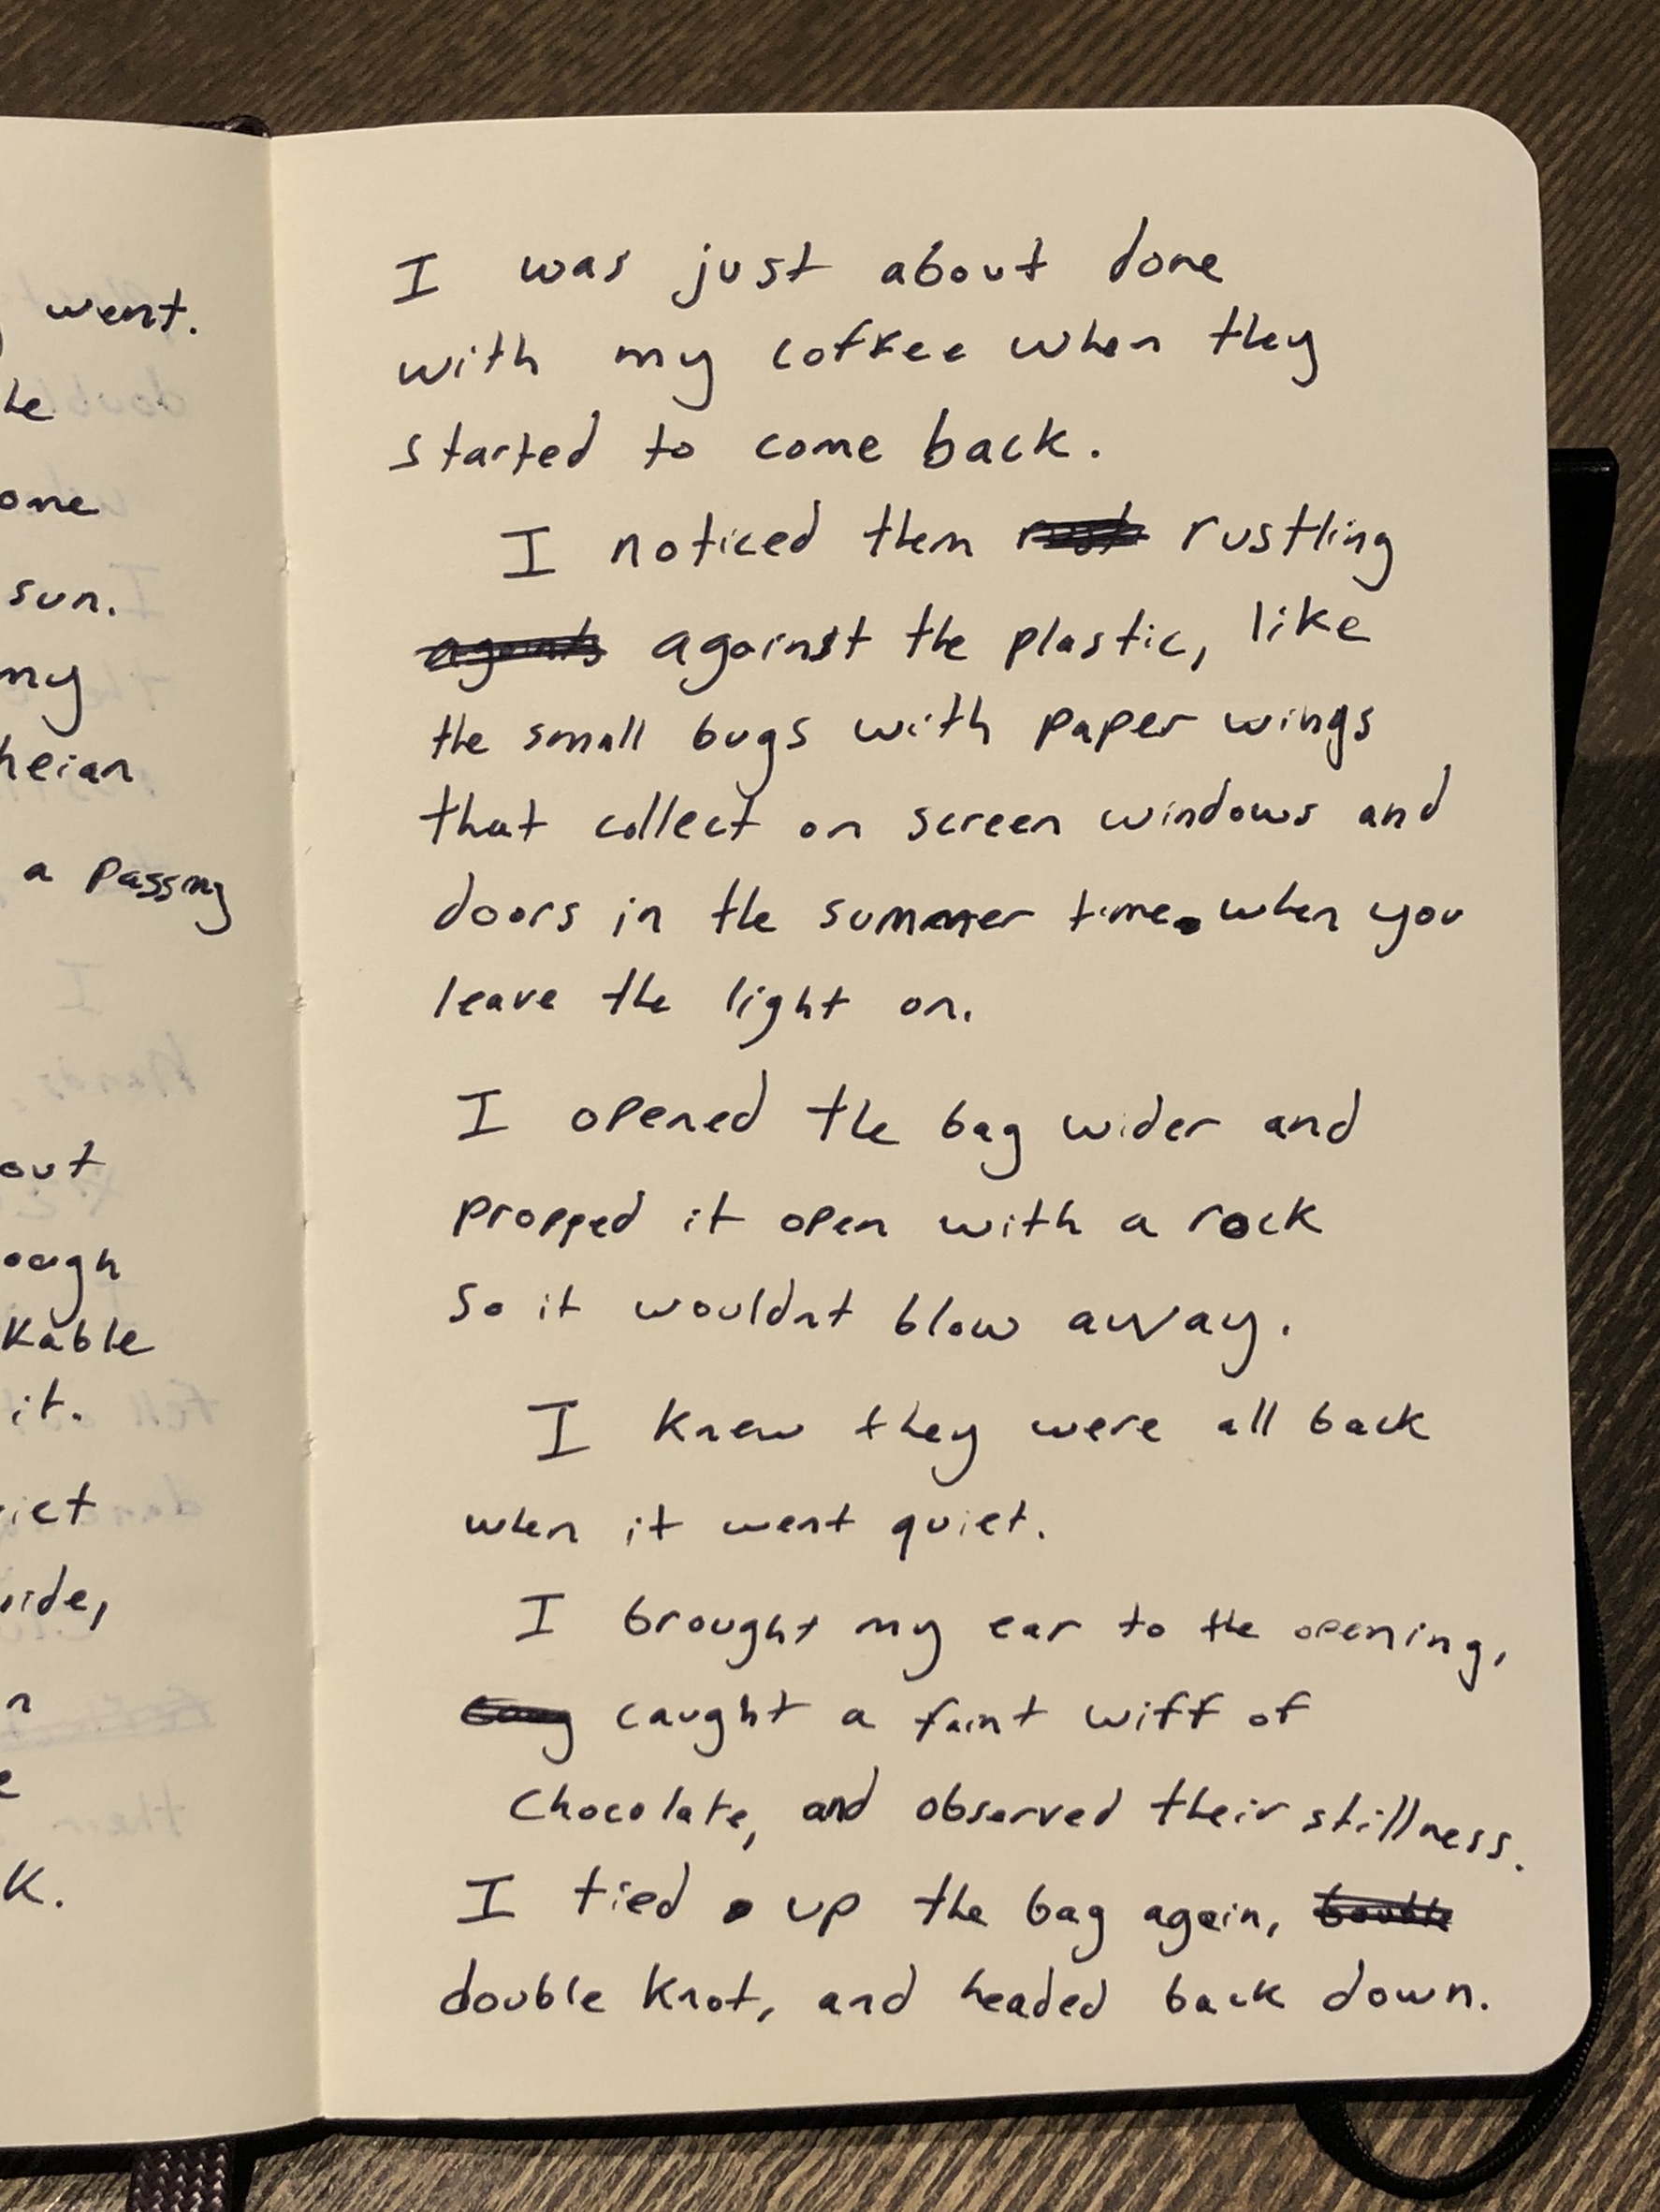 went.
one
sun.
my
a passing
out
it.
I was just about done
with my coffee when they
started to come back.
I noticed them rustling
against the plastic, like
the small bugs with paper wings
that collect on screen windows and
doors in the summer time. when you
leave the light on.
I opened the bag wider and
propped it open with a rock
so it wouldnt blow away.
I knew they were all back
when it went quiet.
I brought my ear to the opening,
caught a faint wiff of
chocolate, and observed their stillness.
I tied up the bag again,
double knot, and headed back down.